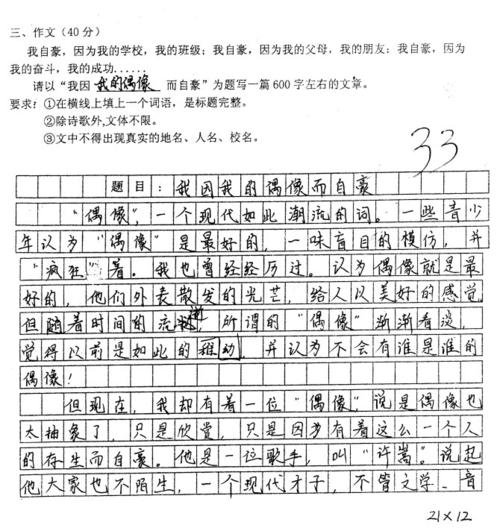 三、作文(40分)
我自豪，因为我的学校，我的班级；我自豪，因为我的父母，我的朋友；我自豪，因为
我的奋斗，我的成功……
请以“我因 我的偶像 而自豪”为题写一篇600字左右的文章。
要求：①在横线上填上一个词语，是标题完整。
②除诗歌外,文体不限。
③文中不得出现真实的地名、人名、校名。
33
题目：我因我的偶像而自豪
“偶像”，一个现代如此潮流的词。一些青少
年认为“偶像”是最好的，一味盲目的模仿，并
“疯狂”着。我也曾经经历过。认为偶像就是最
好的，他们外表散发的光芒，给人以美好的感觉
但随着时间的流逝，所谓的“偶像”渐渐看淡，
觉得以前是如此的 动，并认为不会有谁是谁的
偶像！
但现在，我却有着一位“偶像”，说是偶像也
太抽象了，只是欣赏，只是因为有着这么一个人
的存生而自豪。他是一位歌手，叫“许嵩”。说起
他大家也不陌生，一个现代才子，不管文学、音
21×12